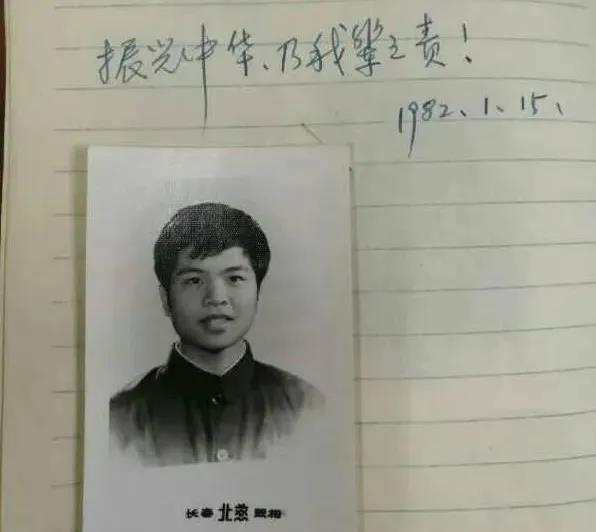 振兴中华、乃我辈之责！
1982、1、15、
长春 北燕 照相